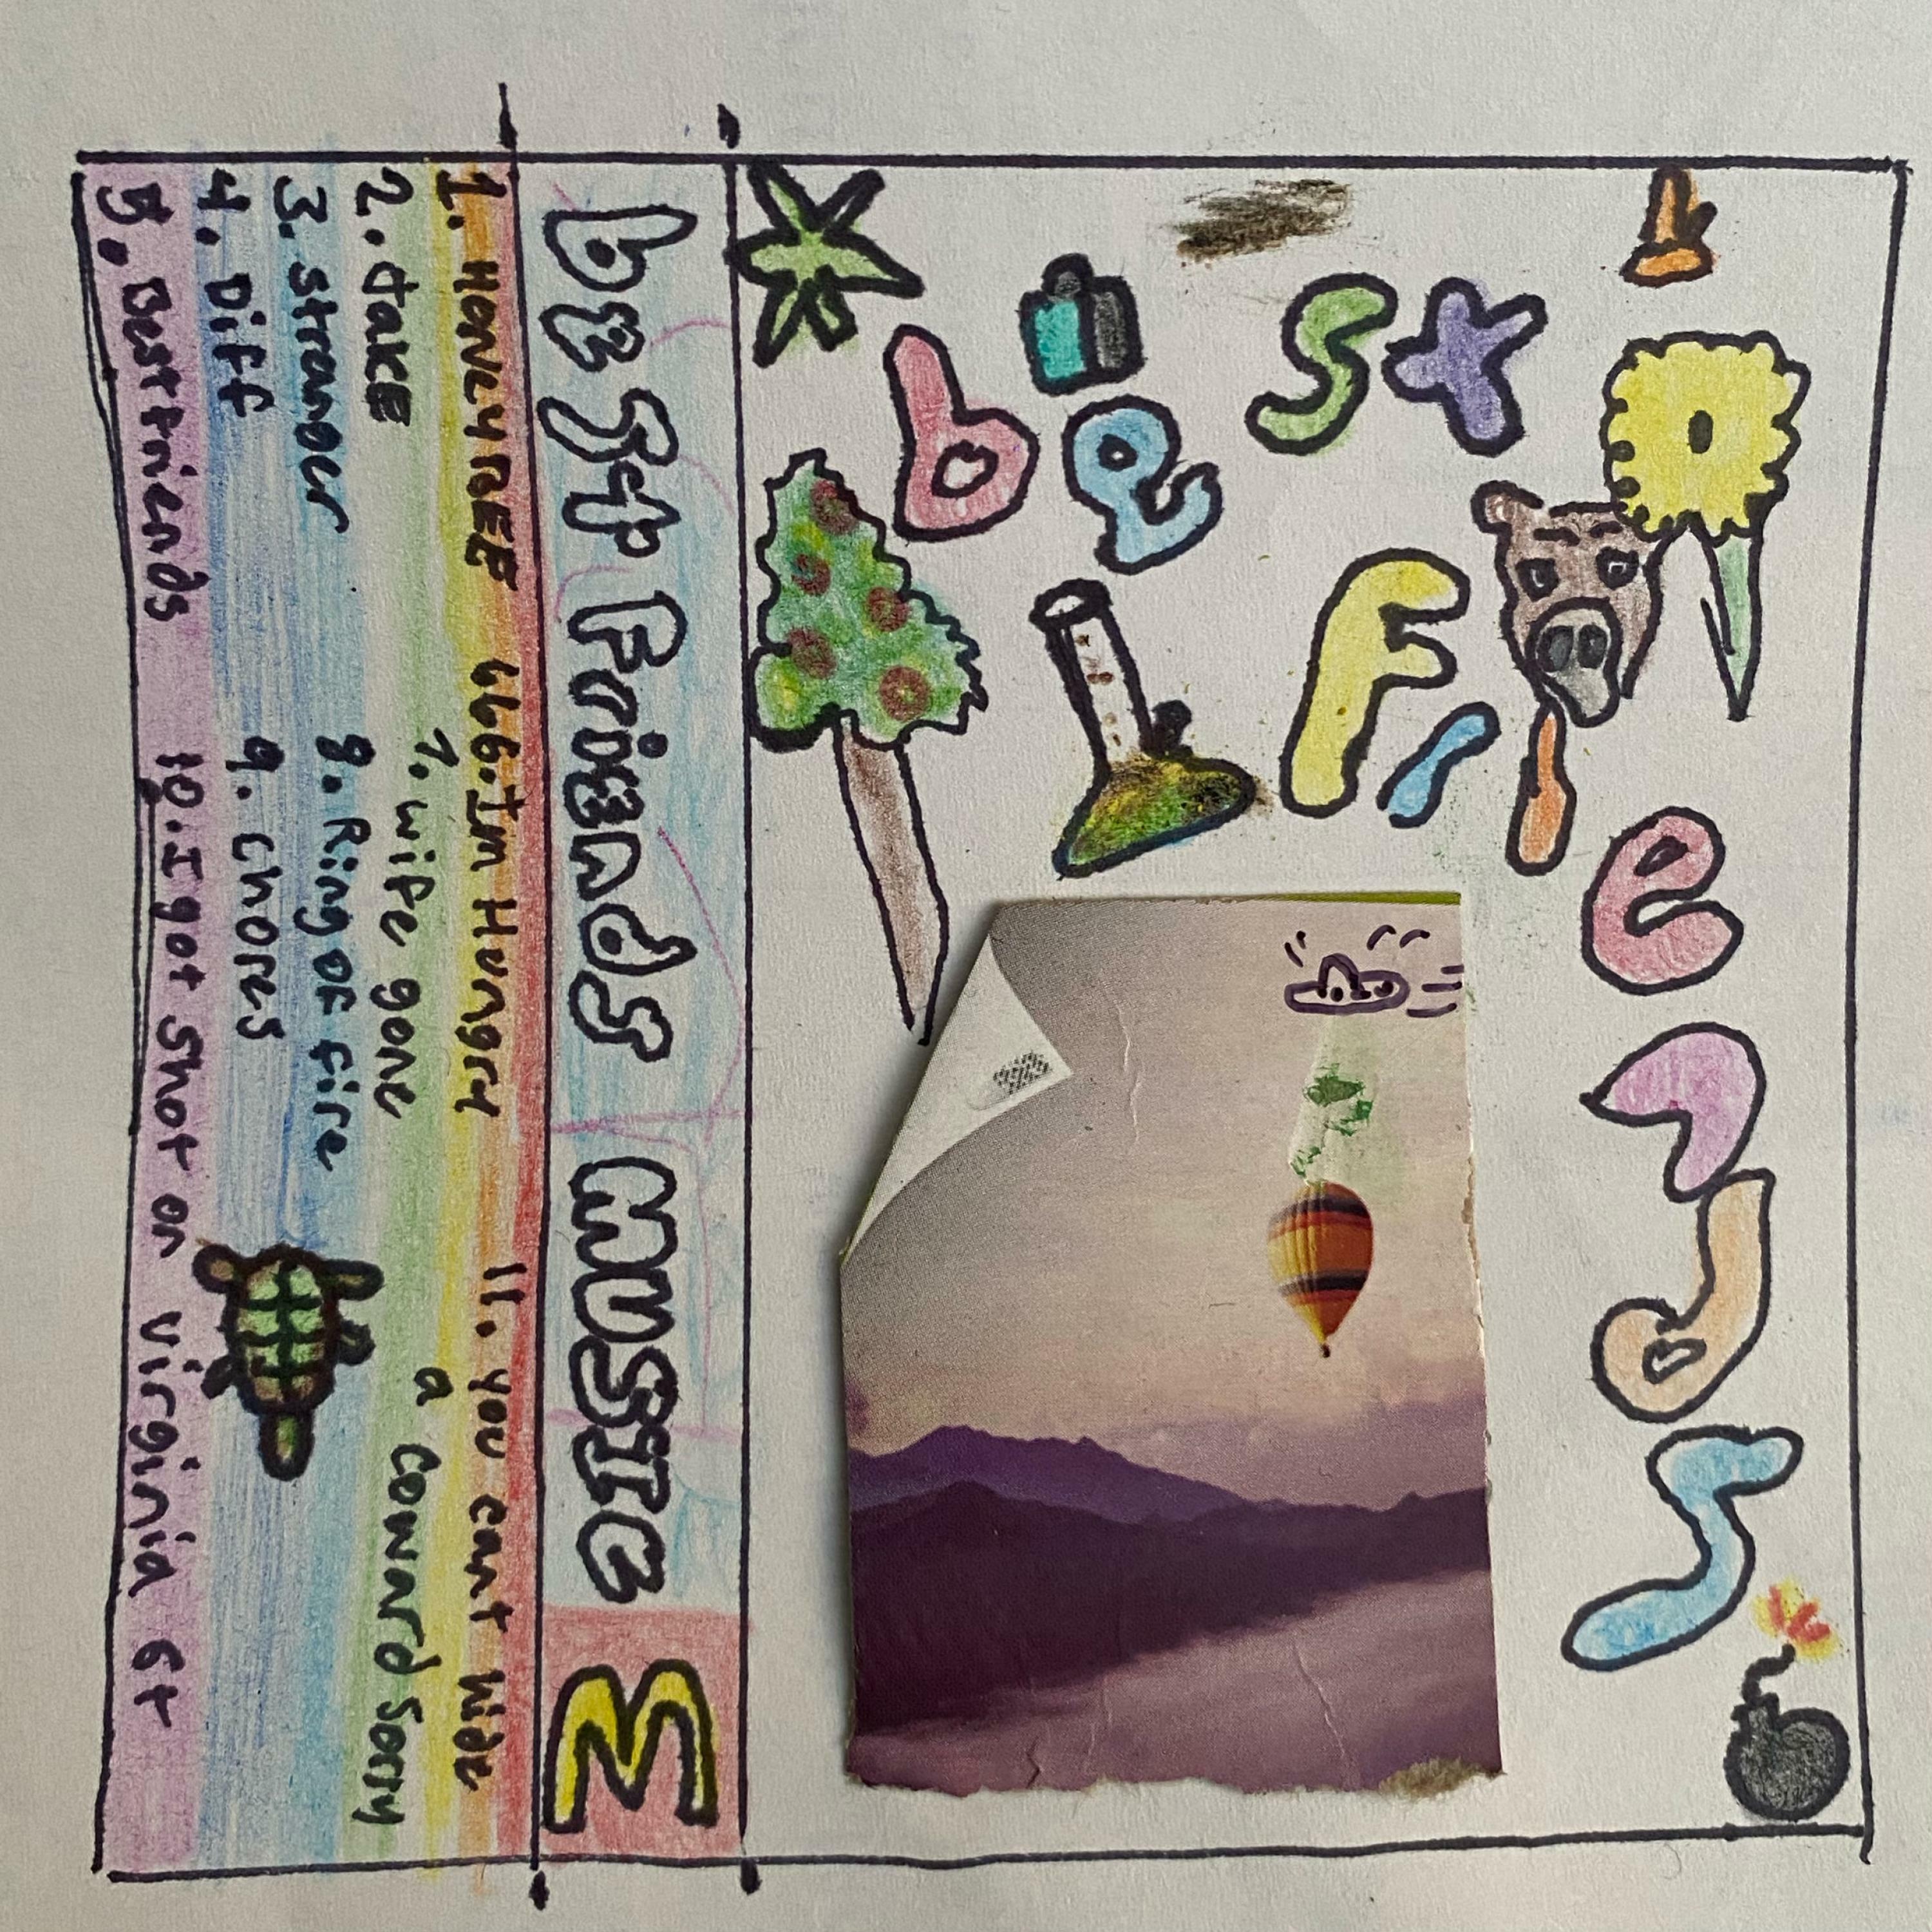 best
Friends
best Friends MUSIC M
1. HONEYBEE
2. take
3. stranger
4. Diff
5. Bestfriends
666. Im Hungry
7. wife gone
8. Ring of fire
9. chores
10. I got shot on Virginia St
11. you cant hide
a coward sorry